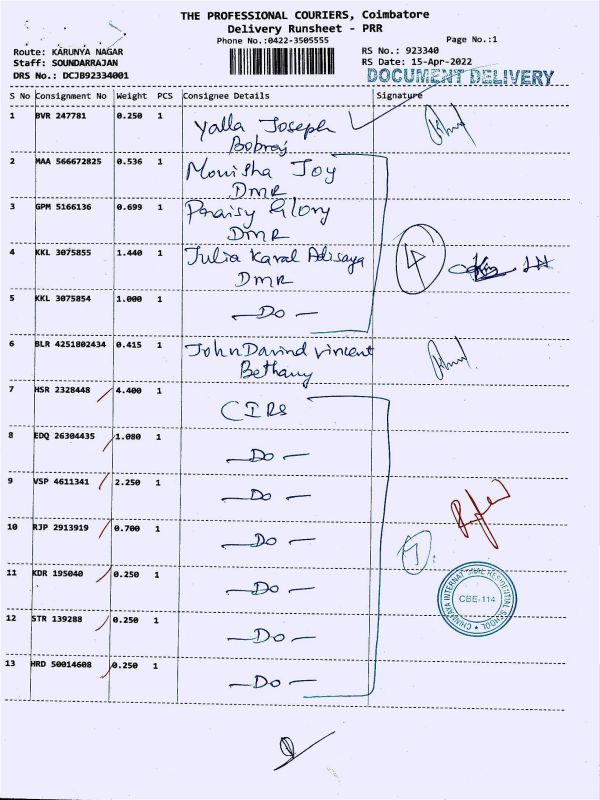 THE PROFESSIONAL COURIERS, Coimbatore
Delivery Runsheet - PRR
Phone No.:0422-3505555
Page No.:1
Route: KARUNYA NAGAR
RS No.: 923340
Staff: SOUNDARRAJAN
RS Date: 15-Apr-2022
DRS No.: DCJB92334001
DOCUMENT DELIVERY
S No Consignment No Weight PCS Consignee Details Signature
1 BVR 247781 0.250 1 Yalla Joseph
Bobraj
2 MAA 566672825 0.536 1 Mouisha Joy
DMR
3 GPM 5166136 0.699 1 Praisy Glory
DMR
4 KKL 3075855 1.440 1 Julia Karal Adisaya
DMR
4
5 KKL 3075854 1.000 1 - Do -
6 BLR 4251802434 0.415 1 John Davind vincent
Bethany
7 HSR 2328448 4.400 1 CIRS
8 EDQ 26304435 1.080 1 - Do -
9 VSP 4611341 2.250 1 - Do -
10 RJP 2913919 0.700 1 - Do -
7.
11 KDR 195040 0.250 1 - Do -
CHINMAYA INTERNATIONAL RESIDENTIAL SCHOOL
CBE-114
12 STR 139288 0.250 1 - Do -
13 HRD 50014608 0.250 1 - Do -